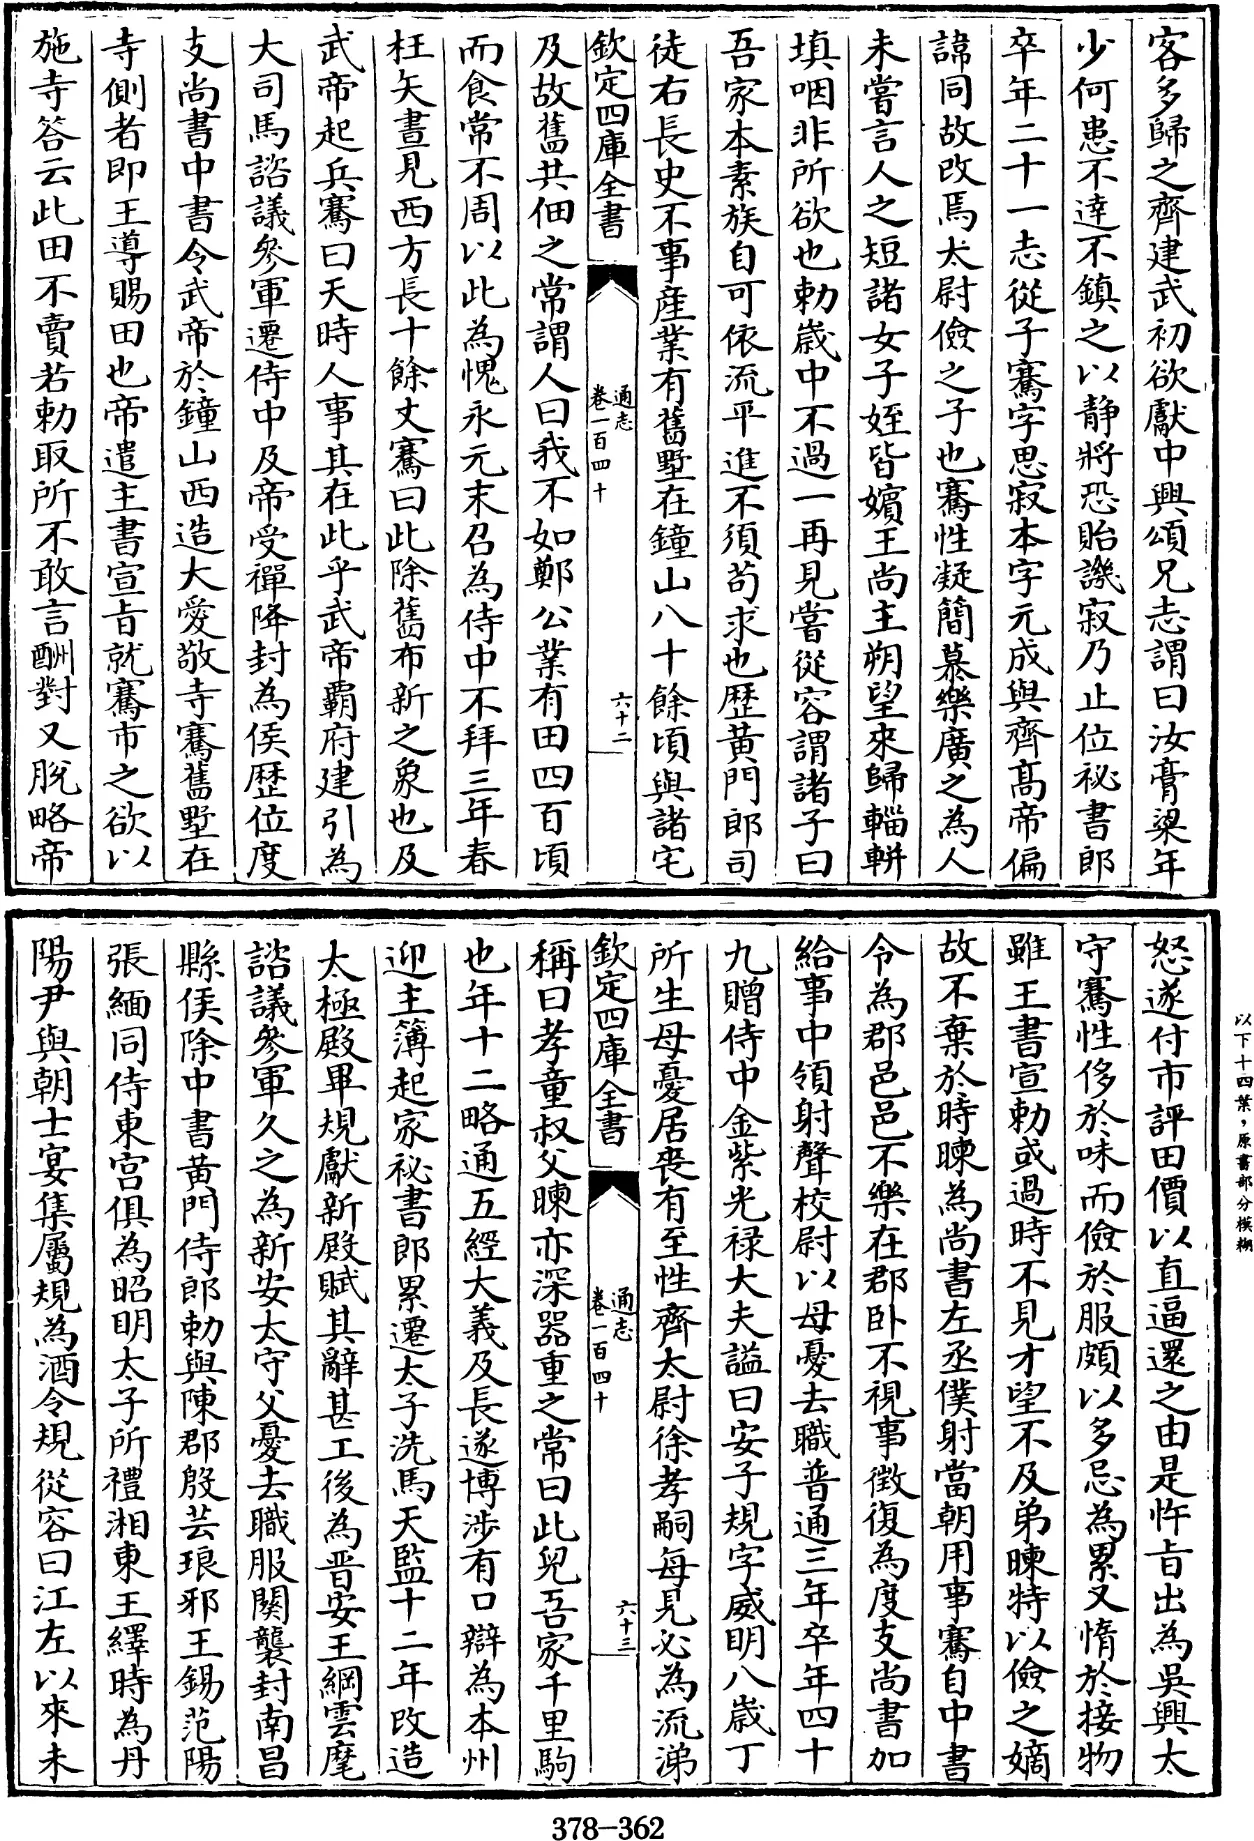 客多歸之齊建武初欲獻中興頌兄志謂曰汝膏粱年
少何患不達不鎮之以静將恐貽譏寂乃止位祕書郎
卒年二十一志從子騫字思寂本字元成與齊髙帝偏
諱同故改焉太尉儉之子也騫性凝簡慕樂廣之為人
未嘗言人之短諸女子姪皆嬪王尚主朔望來歸輜軿
填咽非所欲也勅嵗中不過一再見嘗從容謂諸子曰
吾家本素族自可依流平進不須苟求也歷黄門郎司
徒右長史不事産業有舊墅在鐘山八十餘頃與諸宅
欽定四庫全書
通志
卷一百四十
六十二
及故舊共佃之常謂人曰我不如鄭公業有田四百頃
而食常不周以此為愧永元末召為侍中不拜三年春
枉矢晝見西方長十餘丈騫曰此除舊布新之象也及
武帝起兵騫曰天時人事其在此乎武帝霸府建引為
大司馬諮議參軍遷侍中及帝受禪降封為侯歷位度
支尚書中書令武帝於鐘山西造大愛敬寺騫舊墅在
寺側者即王導賜田也帝遣主書宣旨就騫市之欲以
施寺答云此田不賣若勅取所不敢言酬對又脫略帝
怒遂付市評田價以直逼還之由是忤旨出為吳興太
守騫性侈於味而儉於服頗以多忌為累又惰於接物
雖王書宣勅或過時不見才望不及弟暕特以儉之嫡
故不棄於時暕為尚書左丞僕射當朝用事騫自中書
令為郡邑邑不樂在郡卧不視事徴復為度支尚書加
給事中領射聲校尉以母憂去職普通三年卒年四十
九贈侍中金紫光禄大夫謚曰安子規字威明八嵗丁
所生母憂居喪有至性齊太尉徐孝嗣每見必為流涕
欽定四庫全書
通志
卷一百四十
六十三
稱曰孝童叔父暕亦深器重之常曰此兒吾家千里駒
也年十二略通五經大義及長遂博涉有口辯為本州
迎主簿起家祕書郎累遷太子洗馬天監十二年改造
太極殿畢規獻新殿賦其辭甚工後為晋安王綱雲麾
諮議參軍久之為新安太守父憂去職服闋襲封南昌
縣侯除中書黄門侍郎勅與陳郡殷芸琅邪王錫范陽
張緬同侍東宫俱為昭明太子所禮湘東王繹時為丹
陽尹與朝士宴集屬規為酒令規從容曰江左以來未
以下十四葉，原書部分模糊
378-362